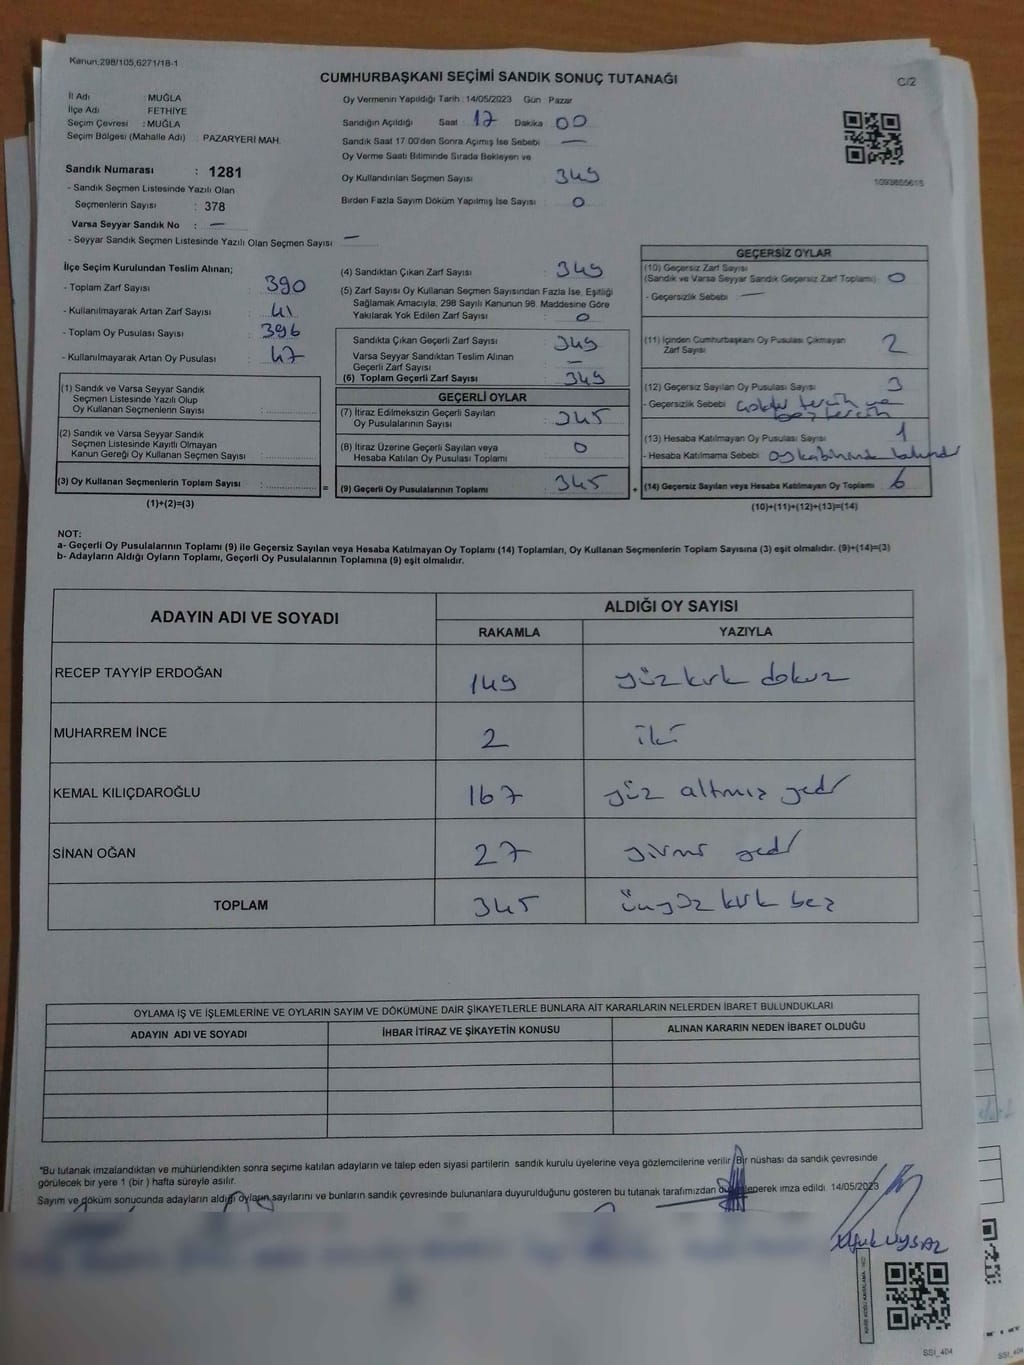 Kanun,298/105,6271/18-1
CUMHURBAŞKANI SEÇİMİ SANDIK SONUÇ TUTANAĞI
C/2
İl Adı : MUĞLA
İlçe Adı : FETHİYE
Seçim Çevresi : MUĞLA
Seçim Bölgesi (Mahalle Adı) : PAZARYERİ MAH.
Oy Vermenin Yapıldığı Tarih : 14/05/2023 Gün : Pazar
Sandığın Açıldığı Saat : 17 Dakika : 00
Sandık Saat 17:00'den Sonra Açımış İse Sebebi : —
Oy Verme Saati Bitiminde Sırada Bekleyen ve
Oy Kullandırılan Seçmen Sayısı : 349
Birden Fazla Sayım Döküm Yapılmış İse Sayısı : 0
1093865615
Sandık Numarası : 1281
- Sandık Seçmen Listesinde Yazılı Olan
Seçmenlerin Sayısı : 378
Varsa Seyyar Sandık No : —
- Seyyar Sandık Seçmen Listesinde Yazılı Olan Seçmen Sayısı : —
İlçe Seçim Kurulundan Teslim Alınan;
- Toplam Zarf Sayısı : 390
- Kullanılmayarak Artan Zarf Sayısı : 41
- Toplam Oy Pusulası Sayısı : 396
- Kullanılmayarak Artan Oy Pusulası : 47
(1) Sandık ve Varsa Seyyar Sandık
Seçmen Listesinde Yazılı Olup
Oy Kullanan Seçmenlerin Sayısı :
(2) Sandık ve Varsa Seyyar Sandık
Seçmen Listesinde Kayıtlı Olmayan
Kanun Gereği Oy Kullanan Seçmen Sayısı :
(3) Oy Kullanan Seçmenlerin Toplam Sayısı :
(1)+(2)=(3)
=
(4) Sandıktan Çıkan Zarf Sayısı : 349
(5) Zarf Sayısı Oy Kullanan Seçmen Sayısından Fazla İse, Eşitliği
Sağlamak Amacıyla, 298 Sayılı Kanunun 98. Maddesine Göre
Yakılarak Yok Edilen Zarf Sayısı : 0
Sandıkta Çıkan Geçerli Zarf Sayısı : 349
Varsa Seyyar Sandıktan Teslim Alınan
Geçerli Zarf Sayısı : —
(6) Toplam Geçerli Zarf Sayısı : 349
GEÇERLİ OYLAR
(7) İtiraz Edilmeksizin Geçerli Sayılan
Oy Pusulalarının Sayısı : 345
(8) İtiraz Üzerine Geçerli Sayılan veya
Hesaba Katılan Oy Pusulası Toplamı : 0
(9) Geçerli Oy Pusulalarının Toplamı : 345
+
GEÇERSİZ OYLAR
(10) Geçersiz Zarf Sayısı
(Sandık ve Varsa Seyyar Sandık Geçersiz Zarf Toplamı) : 0
- Geçersizlik Sebebi : —
(11) İçinden Cumhurbaşkanı Oy Pusulası Çıkmayan
Zarf Sayısı : 2
(12) Geçersiz Sayılan Oy Pusulası Sayısı : 3
- Geçersizlik Sebebi : çoklu tercih ve
boş tercih
(13) Hesaba Katılmayan Oy Pusulası Sayısı : 1
- Hesaba Katılmama Sebebi : oy kabininde bulundu
(14) Geçersiz Sayılan veya Hesaba Katılmayan Oy Toplamı : 6
(10)+(11)+(12)+(13)=(14)
NOT:
a- Geçerli Oy Pusulalarının Toplamı (9) ile Geçersiz Sayılan veya Hesaba Katılmayan Oy Toplamı (14) Toplamları, Oy Kullanan Seçmenlerin Toplam Sayısına (3) eşit olmalıdır. (9)+(14)=(3)
b- Adayların Aldığı Oyların Toplamı, Geçerli Oy Pusulalarının Toplamına (9) eşit olmalıdır.
ADAYIN ADI VE SOYADI
ALDIĞI OY SAYISI
RAKAMLA YAZIYLA
RECEP TAYYİP ERDOĞAN 149 yüz kırk dokuz
MUHARREM İNCE 2 iki
KEMAL KILIÇDAROĞLU 167 yüz altmış yedi
SİNAN OĞAN 27 yirmi yedi
TOPLAM 345 üçyüz kırk beş
OYLAMA İŞ VE İŞLEMLERİNE VE OYLARIN SAYIM VE DÖKÜMÜNE DAİR ŞİKAYETLERLE BUNLARA AİT KARARLARIN NELERDEN İBARET BULUNDUKLARI
ADAYIN ADI VE SOYADI İHBAR İTİRAZ VE ŞİKAYETİN KONUSU ALINAN KARARIN NEDEN İBARET OLDUĞU
"Bu tutanak imzalandıktan ve mühürlendikten sonra seçime katılan adayların ve talep eden siyasi partilerin sandık kurulu üyelerine veya gözlemcilerine verilir. Bir nüshası da sandık çevresinde
görülecek bir yere 1 (bir ) hafta süreyle asılır.
Sayım ve döküm sonucunda adayların aldığı oyların sayılarını ve bunların sandık çevresinde bulunanlara duyurulduğunu gösteren bu tutanak tarafımızdan düzenlenerek imza edildi. 14/05/2023
Ufuk UYSAL
SSI_404